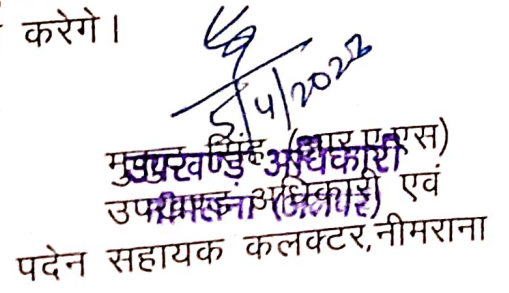 करेगे।
5/4/2022
मुकुट सिंह (आर.ए.एस)
उपखण्ड अधिकारी
उपखण्ड अधिकारी एवं
नीमराना (अलवर)
पदेन सहायक कलक्टर,नीमराना